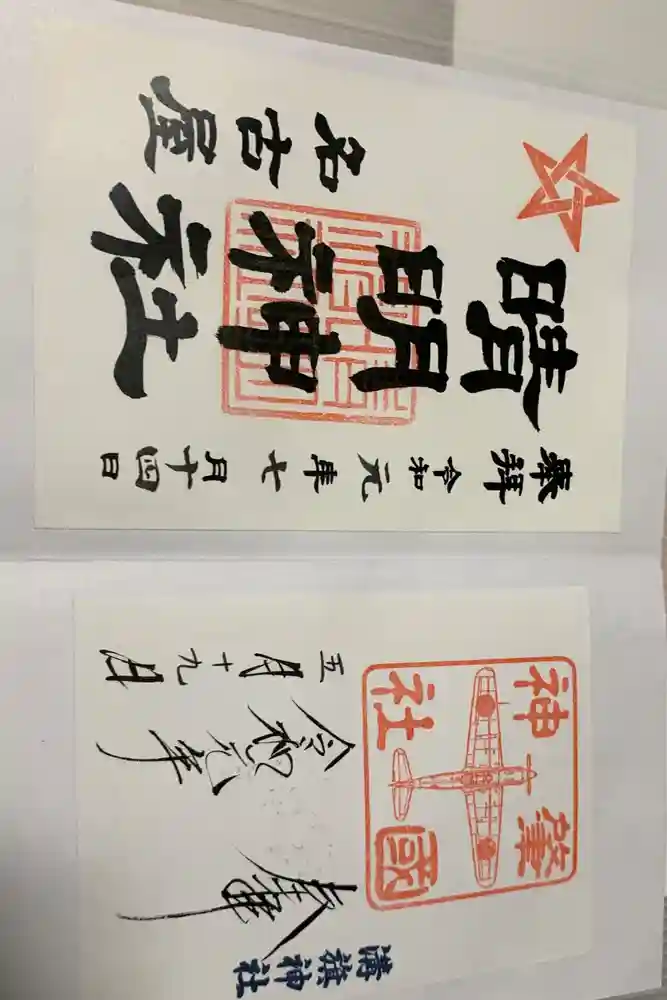 溝旗神社
肇國
神社
令和元年
五月十九日
奉拝 令和元年七月十四日
晴明神社
名古屋